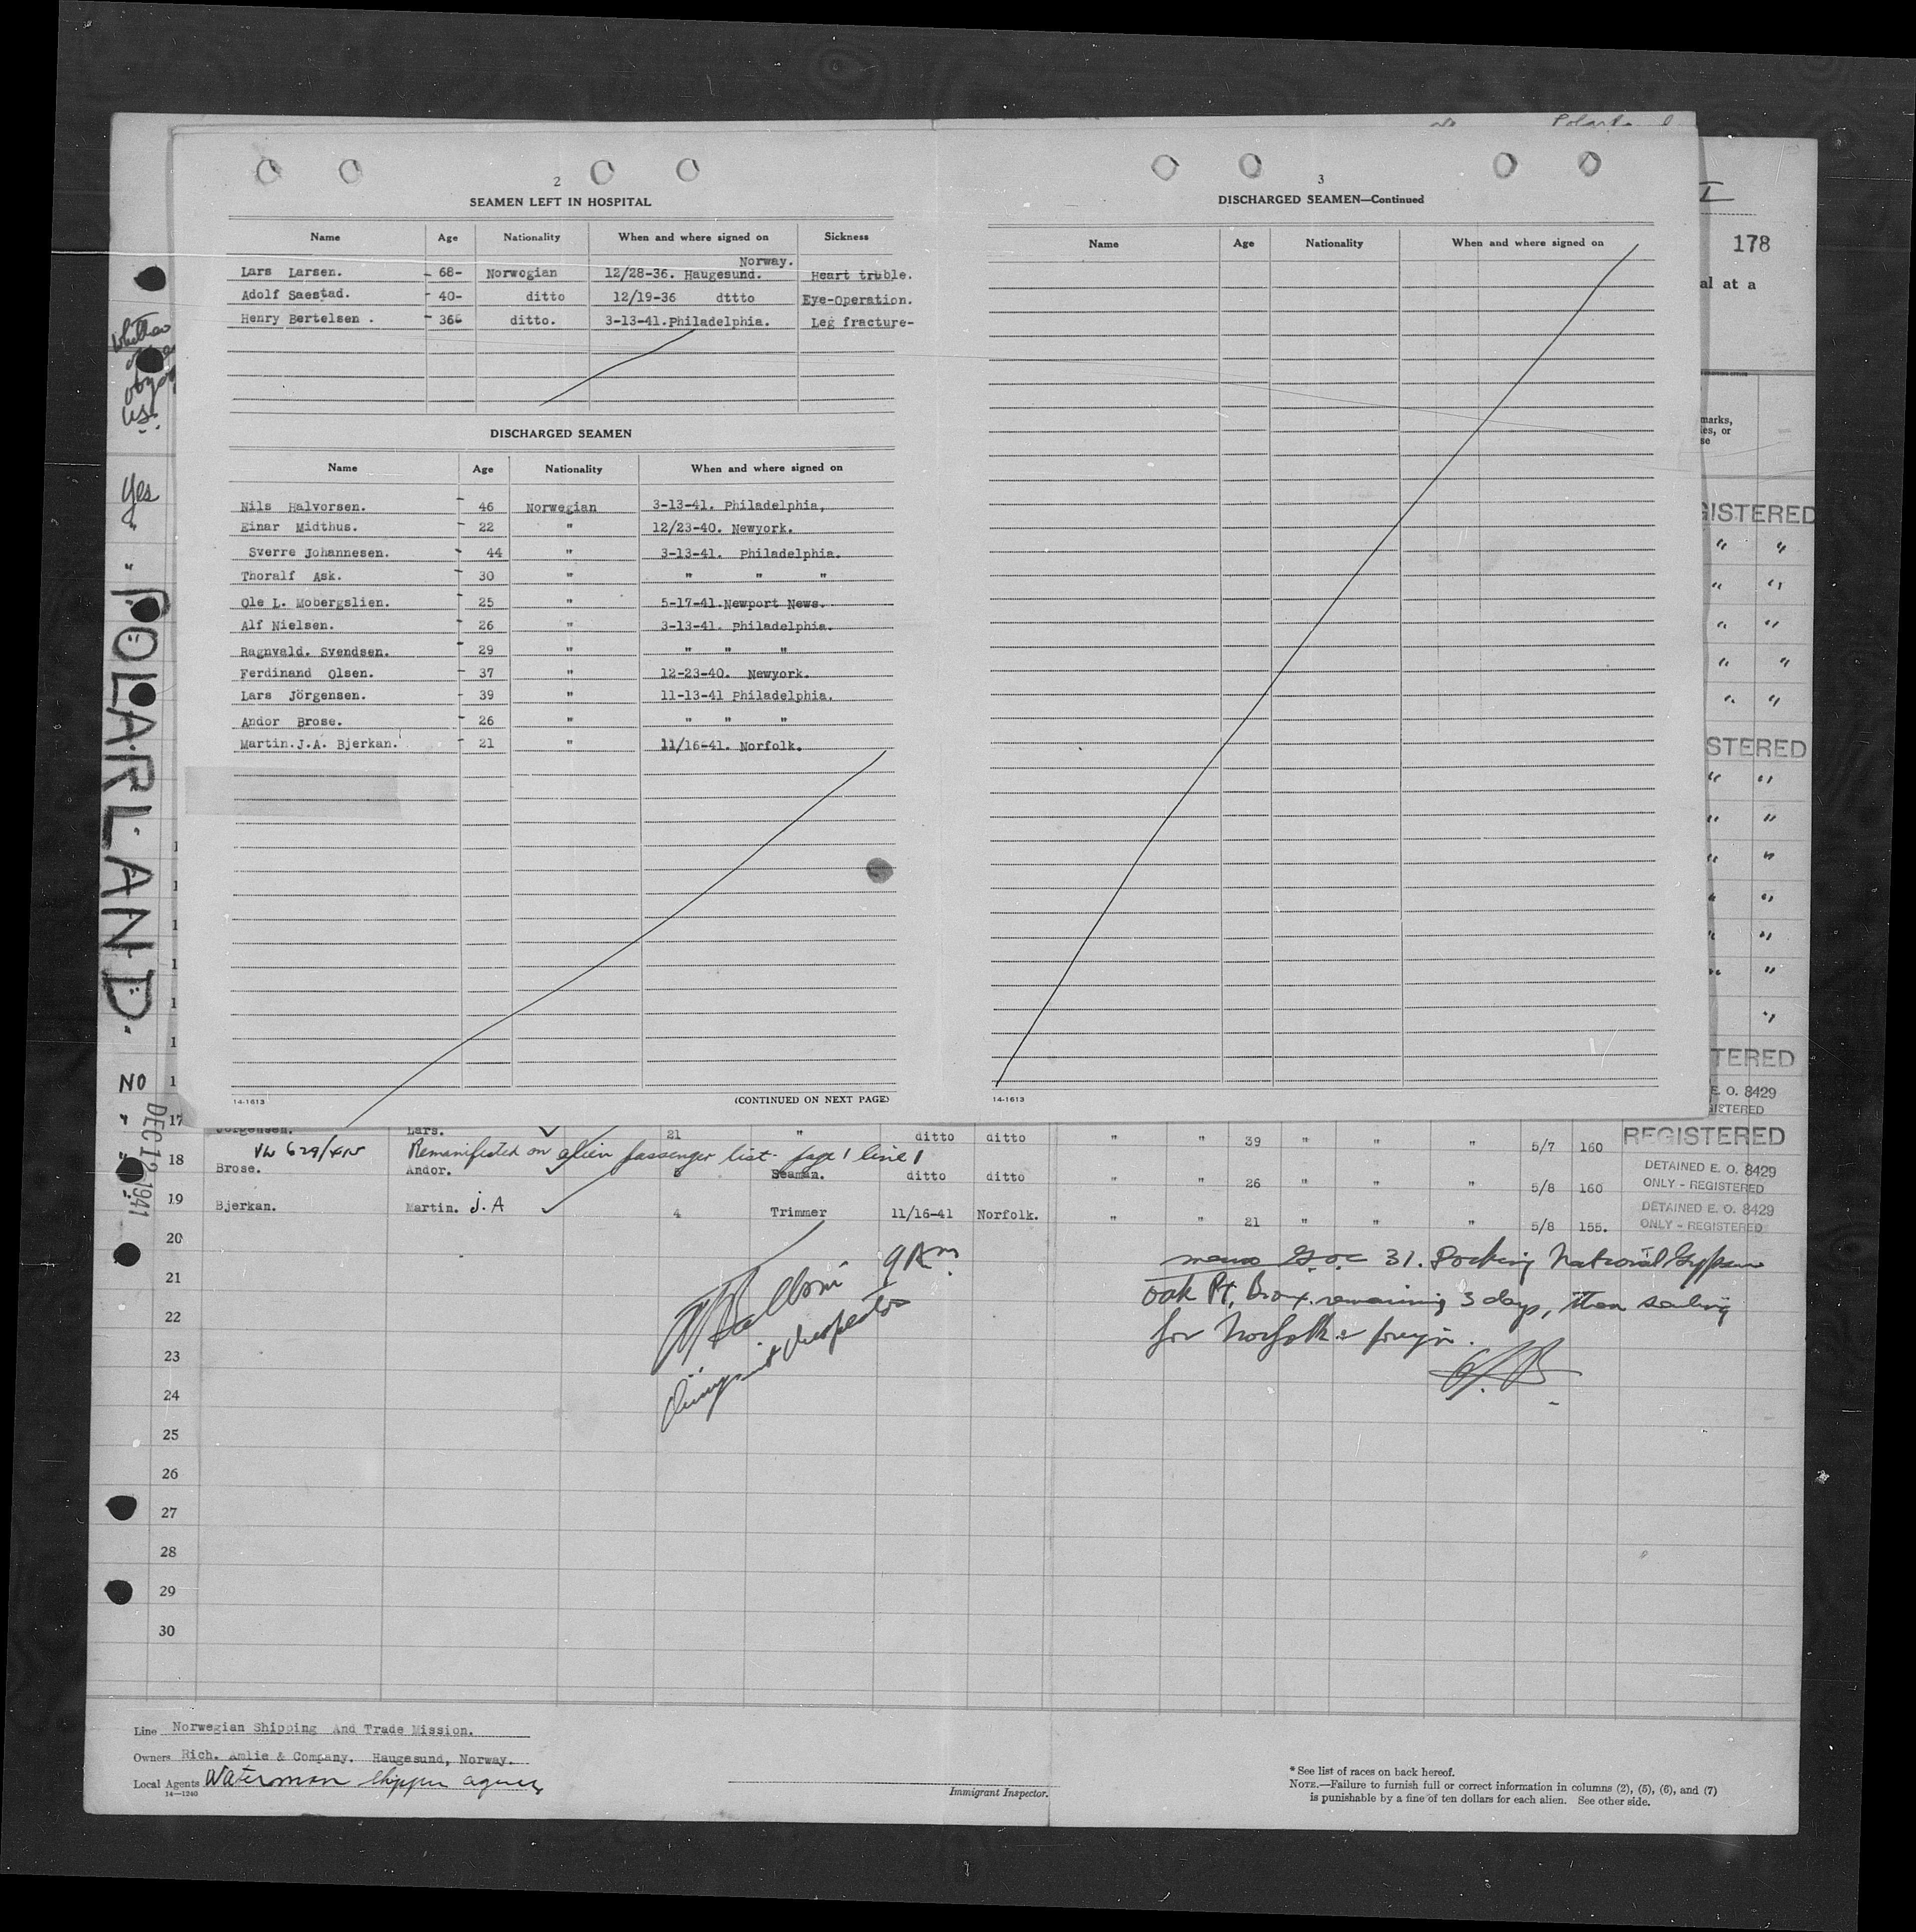 Polarl
2
SEAMEN LEFT IN HOSPITAL
Name Age Nationality When and where signed on Sickness
Norway.
Lars Larsen. - 68- Norwegian 12/28-36. Haugesund. Heart truble.
Adolf Saestad. - 40- ditto 12/19-36 dttto Eye-Operation.
Henry Bertelsen . - 366 ditto. 3-13-41.Philadelphia. Leg fracture-
DISCHARGED SEAMEN
Name Age Nationality When and where signed on
Nils Halvorsen. - 46 Norwegian 3-13-41. Philadelphia,
Einar Midthus. - 22 " 12/23-40. Newyork.
Sverre Johannesen. - 44 " 3-13-41. Philadelphia.
Thoralf Ask. - 30 " " " "
Ole L. Mobergslien. - 25 " 5-17-41.Newport News.
Alf Nielsen. - 26 " 3-13-41. Philadelphia.
Ragnvald. Svendsen. - 29 " " " "
Ferdinand Olsen. - 37 " 12-23-40. Newyork.
Lars Jörgensen. - 39 " 11-13-41 Philadelphia.
Andor Brose. - 26 " " " "
Martin.J.A. Bjerkan. - 21 " 11/16-41. Norfolk.
14-1613 (CONTINUED ON NEXT PAGE)
3
DISCHARGED SEAMEN—Continued
Name Age Nationality When and where signed on
14-1613
I
178
al at a
marks,
es, or
se
GISTERED
" "
" "
" "
" "
" "
STERED
" "
" "
" "
" "
" "
" "
"
TERED
E. O. 8429
GISTERED
Whether
US.
Yes
"
"
POLARLAND.
NO
"
"
DEC 12 1941
17 Jorgensen. Lars. 21 " ditto ditto " " 39 " " " 5/7 160 REGISTERED
Remanifested on alien passenger list. page 1 line 1
18 Brose. Andor. 5 Seaman. ditto ditto " " 26 " " " 5/8 160 DETAINED E. O. 8429
ONLY - REGISTERED
19 Bjerkan. Martin. J. A 4 Trimmer 11/16-41 Norfolk. " " 21 " " " 5/8 155. DETAINED E. O. 8429
ONLY - REGISTERED
20
21
22
23
24
25
26
27
28
29
30
9 Am
31. Docking National Gypsum
Oak Pt, Bronx. remaining 3 days, then sailing
for Norfolk & foreign.
Line Norwegian Shipping And Trade Mission.
Owners Rich. Amlie & Company. Haugesund, Norway.
Local Agents Waterman Shippin agency
14—1240
Immigrant Inspector.
* See list of races on back hereof.
NOTE.—Failure to furnish full or correct information in columns (2), (5), (6), and (7)
is punishable by a fine of ten dollars for each alien. See other side.